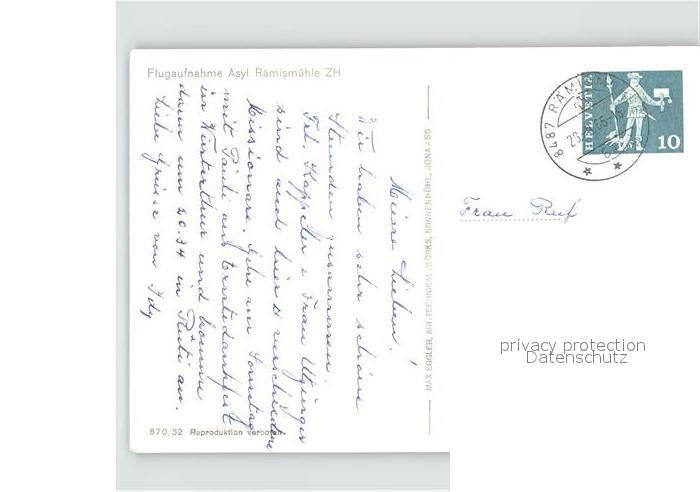 Flugaufnahme Asyl Rämismühle ZH
Meine Lieben!
Wir haben sehr schöne
Stunden zusammen.
Frl. Kappeler & Frau
sind auch hier & verschiedene
Missionare. Gehe am Sonntag
mit Pauli ans Erntedankfest
in Winterthur und komme
dann um 20.34 in Rüti an.
Liebe Grüsse von Idy
870/32 Reproduktion verboten
MAX EGGLER, AIR, TECHNICAL-WORKS, SONNENBÜHL, JONA / SG
8487 RÄMIS
HELVETIA
10
Frau Ruf
privacy protection
Datenschutz